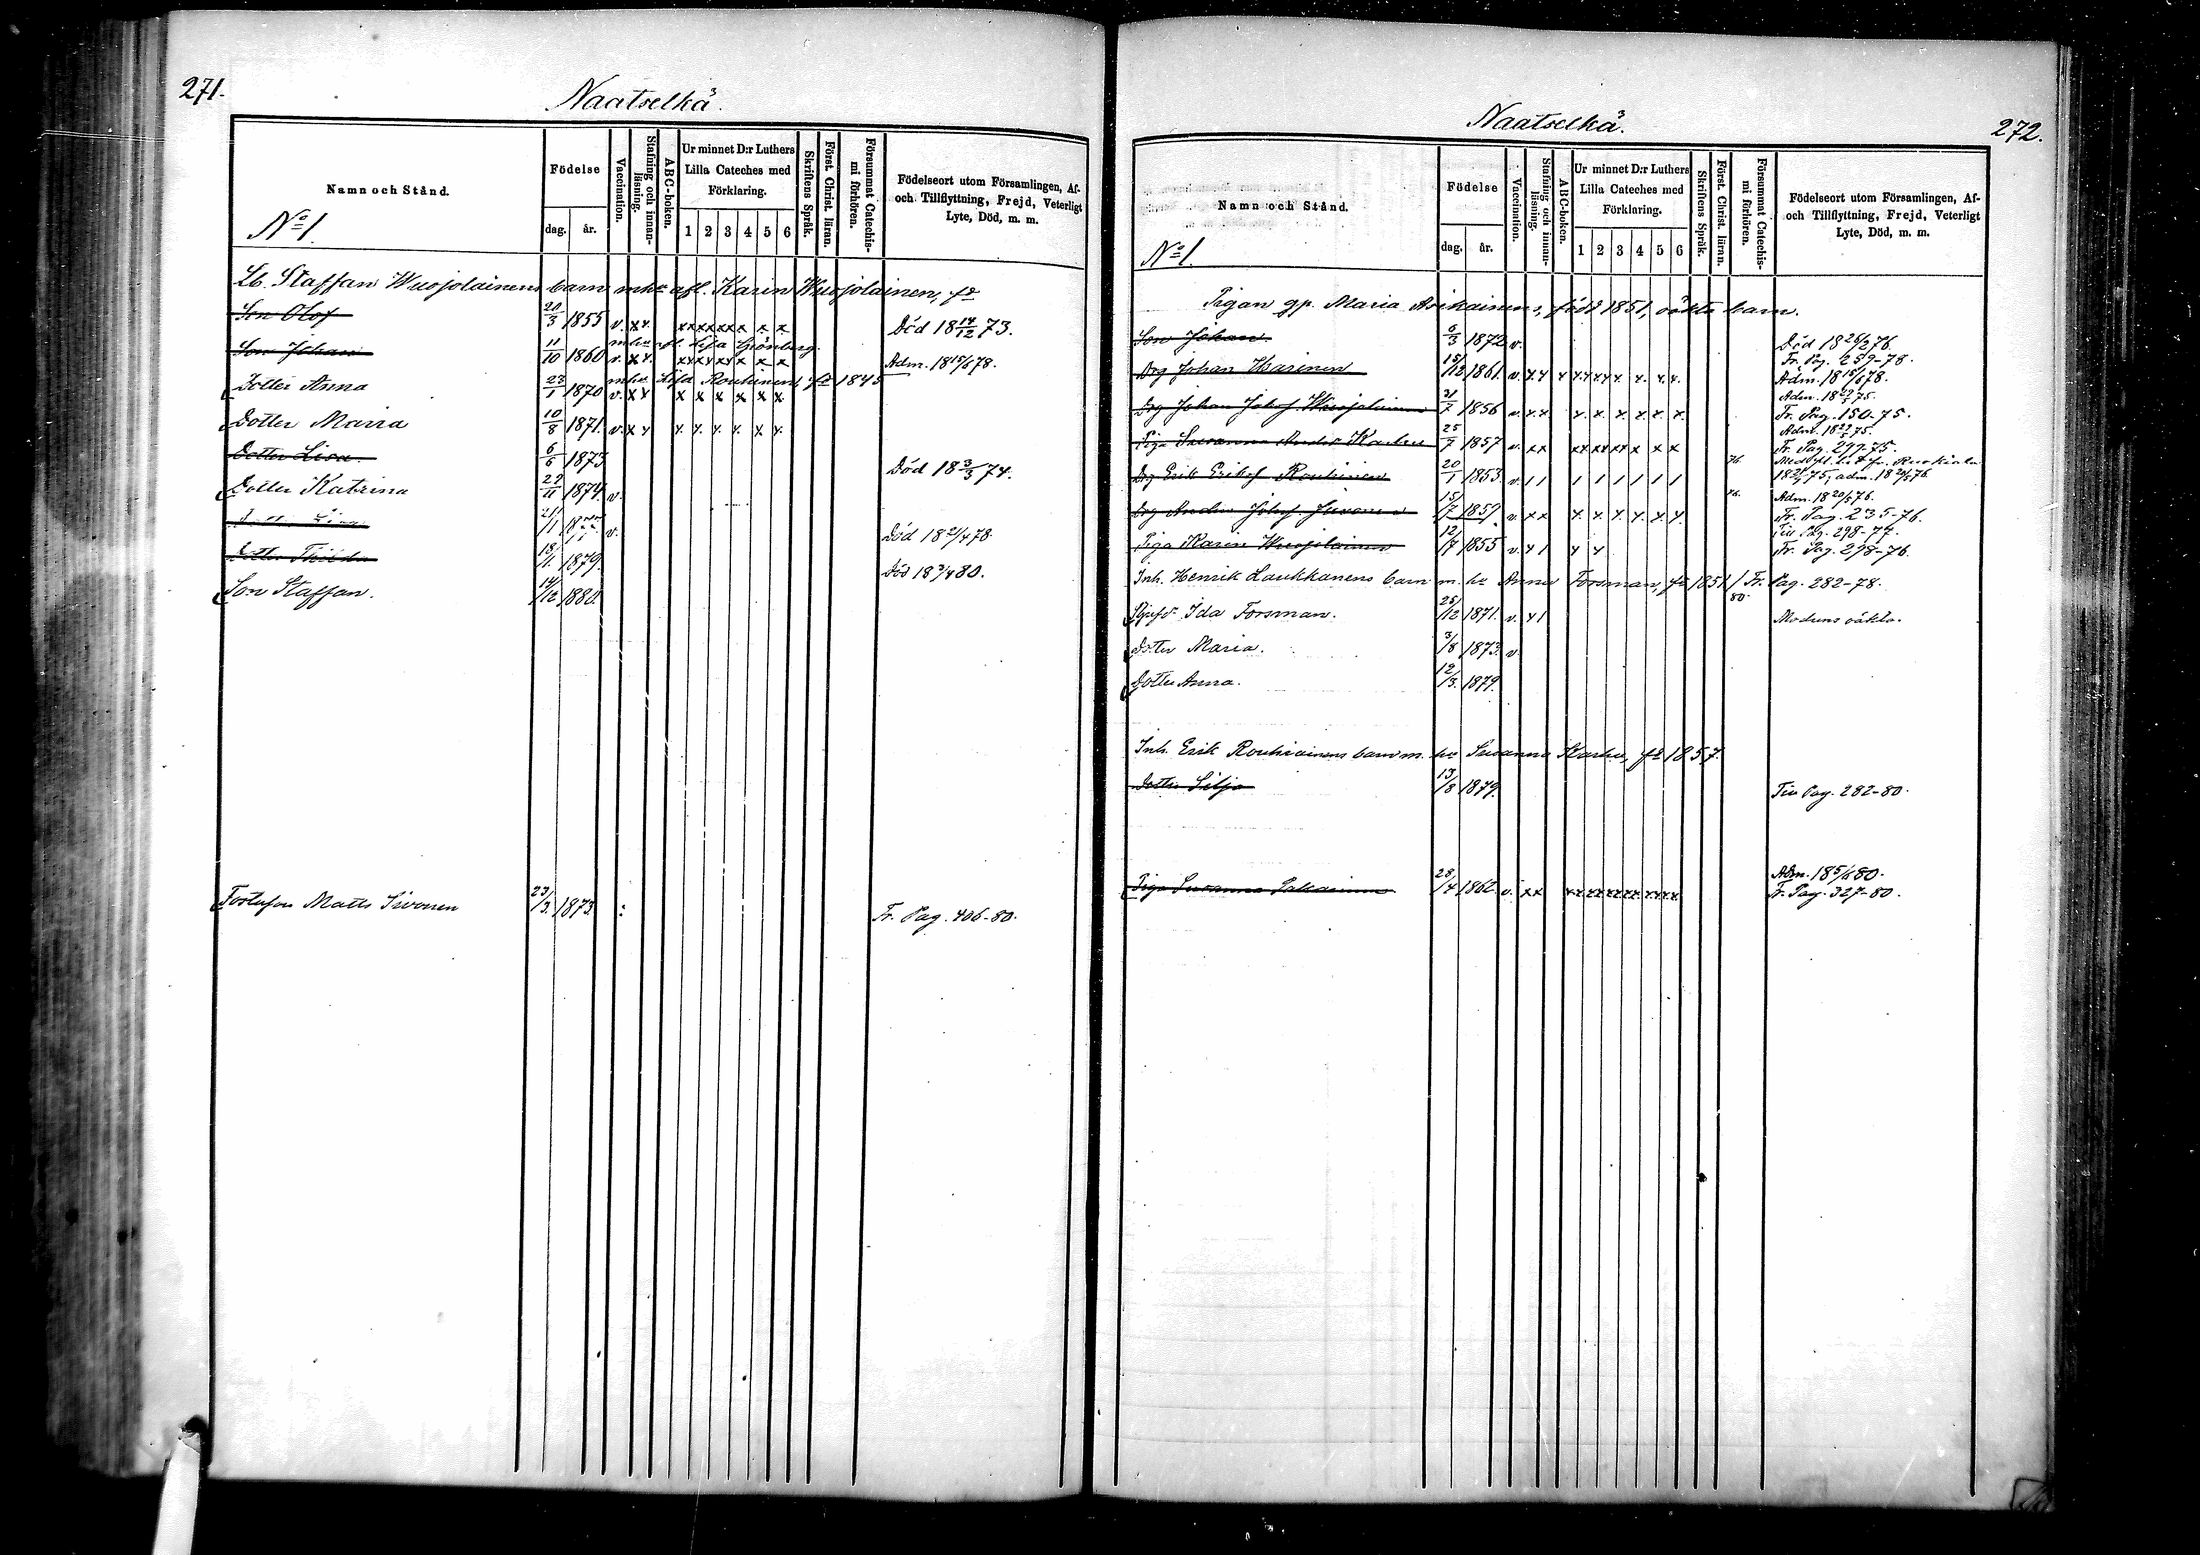 271.
Naatselkä.
Namn och Stånd.
Födelse
dag. år.
Vaccination.
Stafning och innanläsning.
ABC-boken.
Ur minnet D:r Luthers
Lilla Cateches med
Förklaring.
1 2 3 4 5 6
Skriftens Språk.
Först. Christ. läran.
Försummat Catechismi förhören.
Födelseort utom Församlingen, Af-
och Tillflyttning, Frejd, Veterligt
Lyte, Död, m. m.
No 1.
Lb. Staffan Wuojolainens barn mhu afl. Karin Wuojolainen, fd
Son Olof 20/3 1855 v. x x. x x x x x x x x x Död 18 14/12 73.
mhu afl. Lisa Grönberg.
Son Johan 11/10 1860 v. x x. x x x x x x x x x Adm. 18 15/6 78.
mhu Lisa Rouhinen, fd 1845
Dotter Anna 23/1 1870 v. x x x x x x x x
Dotter Maria 10/8 1871. v. x x x. x. x. x. x x.
Dotter Lisa. 6/6 1873 Död 18 3/3 74.
Dotter Katrina 29/11 1874. v.
21/1 v. Död 18 2/4 78.
Dotter Thilda 18/1. 1879. Död 18 3/4 80.
Son Staffan. 14/12 1880.
Fosterson Matts Sivonen 23/3. 1873. Fr. Pag. 406-80.
272.
Naatselkä.
Namn och Stånd.
Födelse
dag. år.
Vaccination.
Stafning och innanläsning.
ABC-boken.
Ur minnet D:r Luthers
Lilla Cateches med
Förklaring.
1 2 3 4 5 6
Skriftens Språk.
Först. Christ. läran.
Försummat Catechismi förhören.
Födelseort utom Församlingen, Af-
och Tillflyttning, Frejd, Veterligt
Lyte, Död, m. m.
No 1.
Pigan gp. Maria Asikainens, född 1851, oäkta barn.
Son Johan 6/3 1872 v. Död 18 26/2 76.
Fr. Pag. 259-78.
Drg Johan Ikarinen 15/12 1861. v. x x x x x x x x. x. x x. Adm. 18 15/6 78.
Adm. 18 22/5 75.
Drg Johan Wuojolainen 21/7 1856 v. x x. x. x. x. x. x. x. Fr. Pag. 150-75.
Adm. 18 22/5 75.
Piga Susanna Karhu 25/7 1857 v. x x x x x x x x x x x Fr. Pag. 299-75.
76. Med fl. bet fr. Ruskiala
Drg Erik Eriksf. Rouhinen 20/1 1853. v. 1 1 1 1 1 1 1 1 adm. 18 20/5 76.
76. Adm. 18 20/5 76.
Drg Anders Johsf. Sivonen 15/7 1859 v. x x x. x. x. x. x. x. Fr. Pag. 235-76.
Till Pag. 298-77.
Piga Karin Wuojolainen 12/7 1855 v. x 1 x x Fr. Pag. 298-76.
Inh. Henrik Laukkanens barn m. hu Anna Forsman, fd 1851 / Fr. Pag. 282-78.
80.
Ida Forsman. 25/12 1871. v. x 1 Modrens oäkta.
Dotter Maria. 3/8 1873. v.
Dotter Anna. 12/3. 1879.
Inh. Erik Rouhiainens barn m. hu Susanna Karhu, fd 1857.
Dotter Silja 13/8 1879. Till Pag. 282-80.
Adm. 18 5/6 80.
Piga Susanna 28/4 1862. v. x x x x x x x x x x x x x x Fr. Pag. 327-80.